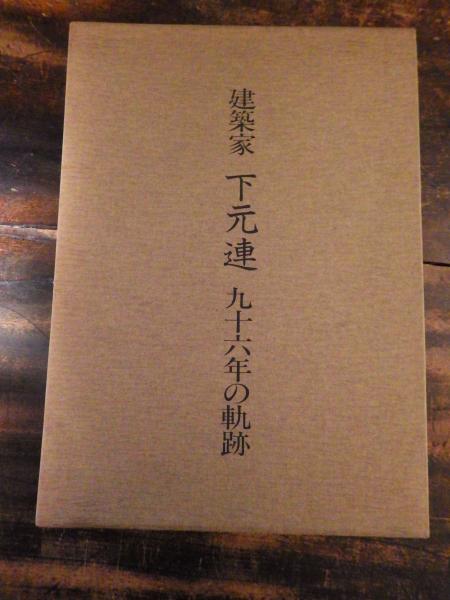 建築家 下元連 九十六年の軌跡